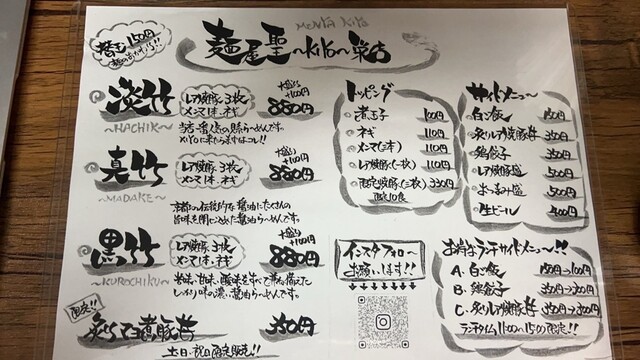 替玉150円
MENYA KIYO
麺屋聖~KIYO~巣店
淡竹
~HACHIKU~
レア焼豚3枚
メンマ1本、ネギ
大盛り+100円
880円
当店一番人気の豚らーめんです。
KIYOに来たらまずはコレ!!
真竹
~MADAKE~
レア焼豚3枚
メンマ1本、ネギ
大盛り+100円
880円
京都の伝統的な醤油にたくさんの
旨味を閉じ込めた醤油らーめんです。
黒竹
~KUROCHIKU~
レア焼豚3枚
メンマ1本、ネギ
大盛り+100円
880円
苦味、甘味、酸味をすべて兼ね備えた
しっかり味の濃い醤油らーめんです。
限定!!
350円
土日、祝日限定販売!!
トッピング
煮玉子 100円
ネギ 110円
メンマ(三本) 110円
レア焼豚(一枚) 110円
限定焼豚(二枚) 330円
限定10食
インスタフォロー
お願いします!!
サイドメニュー
白ご飯 150円
炙りレア焼豚丼 350円
鶏餃子 350円
レア焼豚盛 500円
おつまみ盛 500円
生ビール 400円
お得なランチサイドメニュー!!
A. 白ご飯 150円→100円
B. 鶏餃子 350円→300円
C. 炙りレア焼豚丼 350円→300円
ランチタイム11:00~15:00限定!